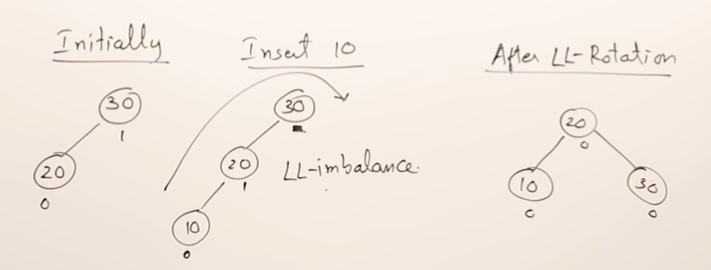 Initially
30
1
20
0
Insert 10
30
20
1
LL-imbalance.
10
0
After LL-Rotation
20
0
10
0
30
0